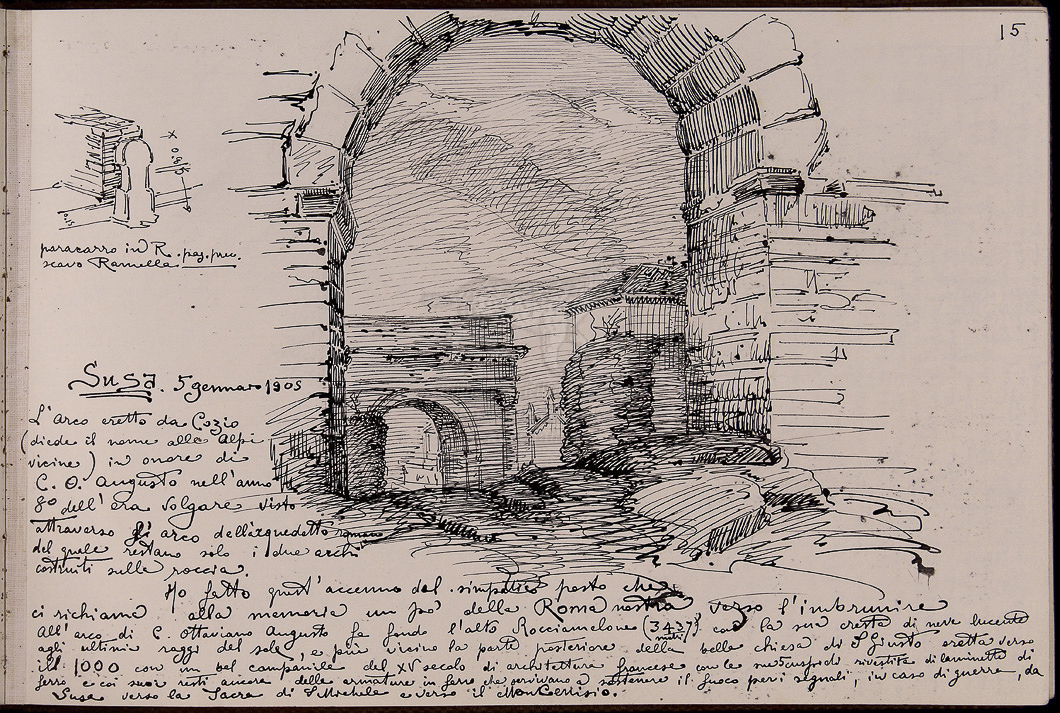 15
0,90
paracarro in R. pag. prec.
scavo Ramella
Susa. 5 gennaio 1905
L'Arco eretto da Cozio
(diede il nome alle Alpi
vicine) in onore di
C. O. Augusto nell'anno
8º dell'era volgare visto
attraverso gli arco dell'acquedotto romano
del quale restano solo i due archi
costruiti sulla roccia.
Ho fatto quest'accenno del simpatico posto che
ci richiama alla memoria un po' della Roma nostra verso l'imbrunire
All'arco di C. Ottaviano Augusto fa fondo l'alto Rocciamelone (3437 metri) con la sua cresta di neve lucente
agli ultimi raggi del sole, e più vicino la parte posteriore della bella chiesa di S. Giusto eretta verso
il 1000 con un bel campanile del XV secolo di architettura francese con le sue cuspidi rivestite di laminette di
ferro e coi suoi resti ancora delle armature in ferro che servivano a sostenere il fuoco per i segnali, in caso di guerra, da
Susa verso la Sacra di S. Michele e verso il Moncenisio.